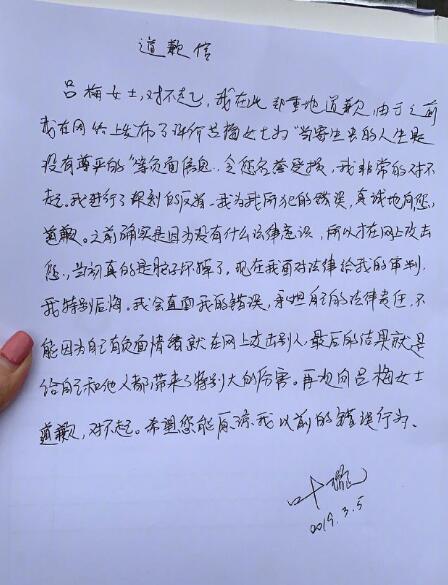 道歉信
吕梅女士，对不起，我在此郑重地道歉，由于之前
我在网络上发布了评价吕梅女士为“当寄生虫的人生是
没有尊严的”等负面信息，令您名誉受损，我非常的对不
起。我进行了深刻的反省，我为我所犯的错误，真诚地向您
道歉。之前确实是因为没有什么法律意识，所以才在网上攻击
您，当初真的是脑子坏掉了，现在我面对法律给我的审判，
我特别后悔，我会直面我的错误，承担自己的法律责任，不
能因为自己有负面情绪就在网上攻击别人，最后的结果就是
给自己和他人都带来了特别大的伤害。再次向吕梅女士
道歉，对不起。希望您能原谅我以前的错误行为。
叶璇
2019.3.5